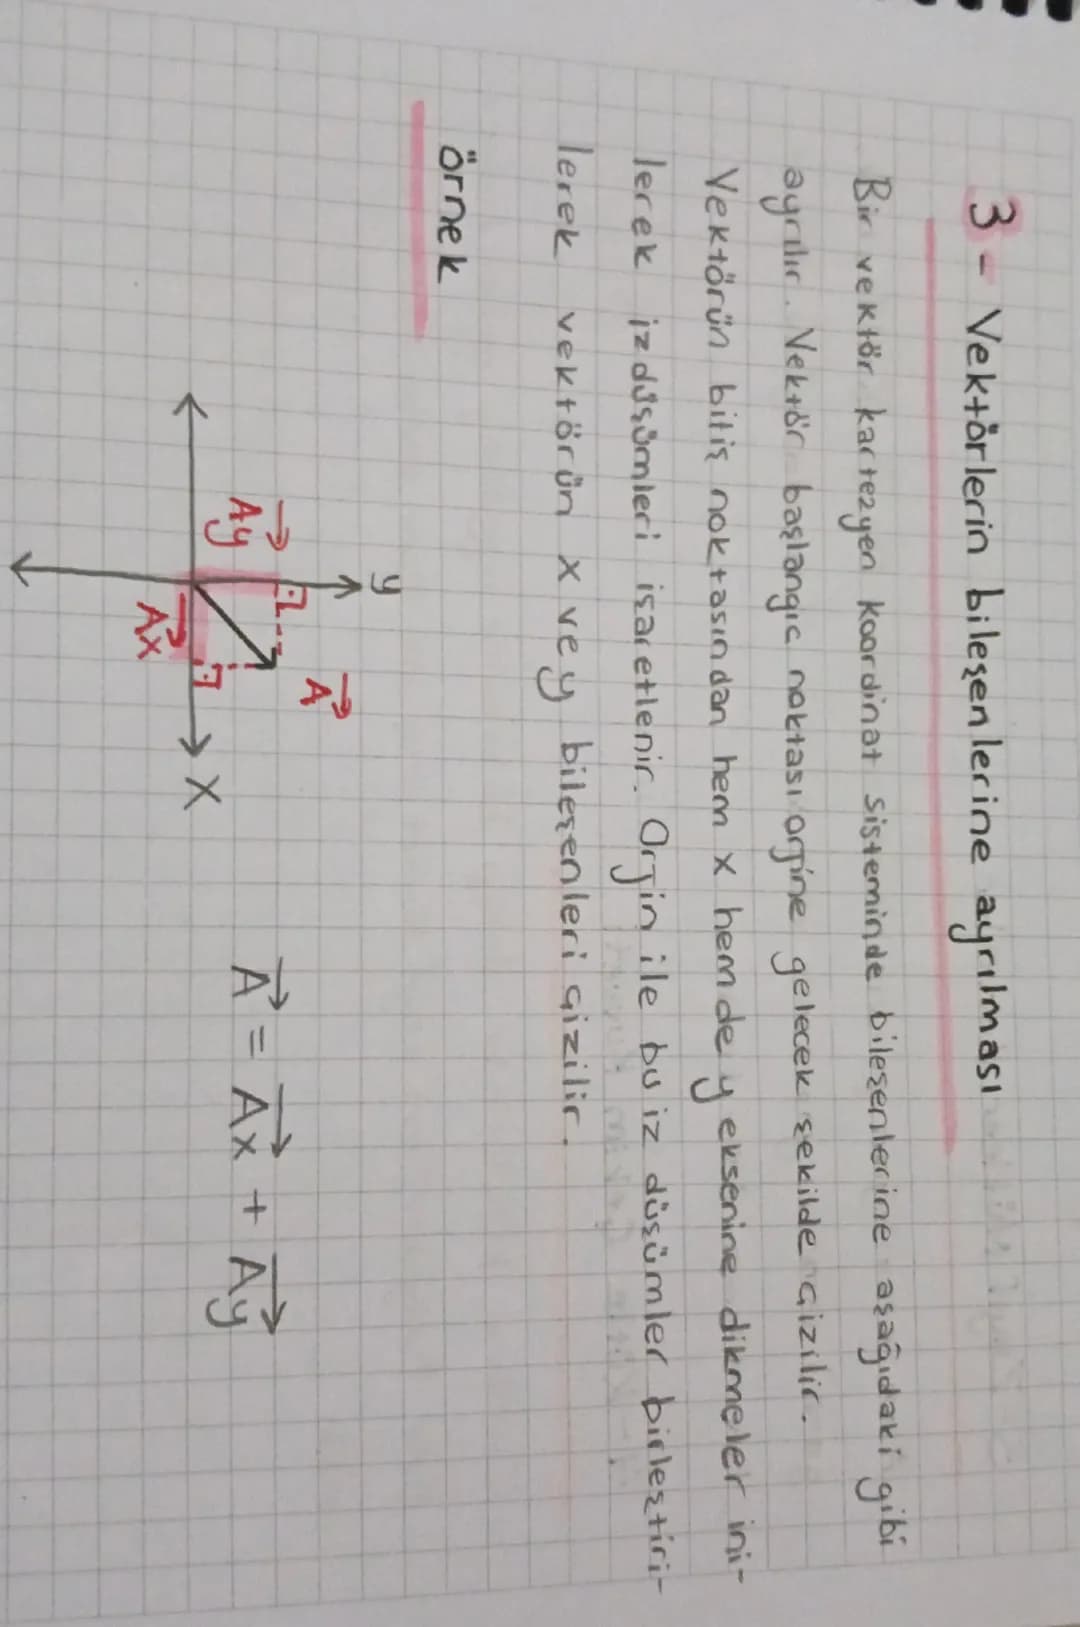 3- Vektörlerin bileşenlerine ayrılması
Bir vektör kartezyen koordinat sisteminde bileşenlerine aşağıdaki gibi
ayrılır. Vektör başlangıc noktası orjine gelecek şekilde çizilir.
Vektörün bitiş noktasından hem x hem de y eksenine dikmeler ini-
lerek izdüşümleri işaretlenir. Orjin ile bu iz düşümler birleştiri-
lerek vektörün x ve y bileşenleri çizilir.
örnek
y
A⃗
A⃗y
A⃗x
X
A⃗ = A⃗x + A⃗y